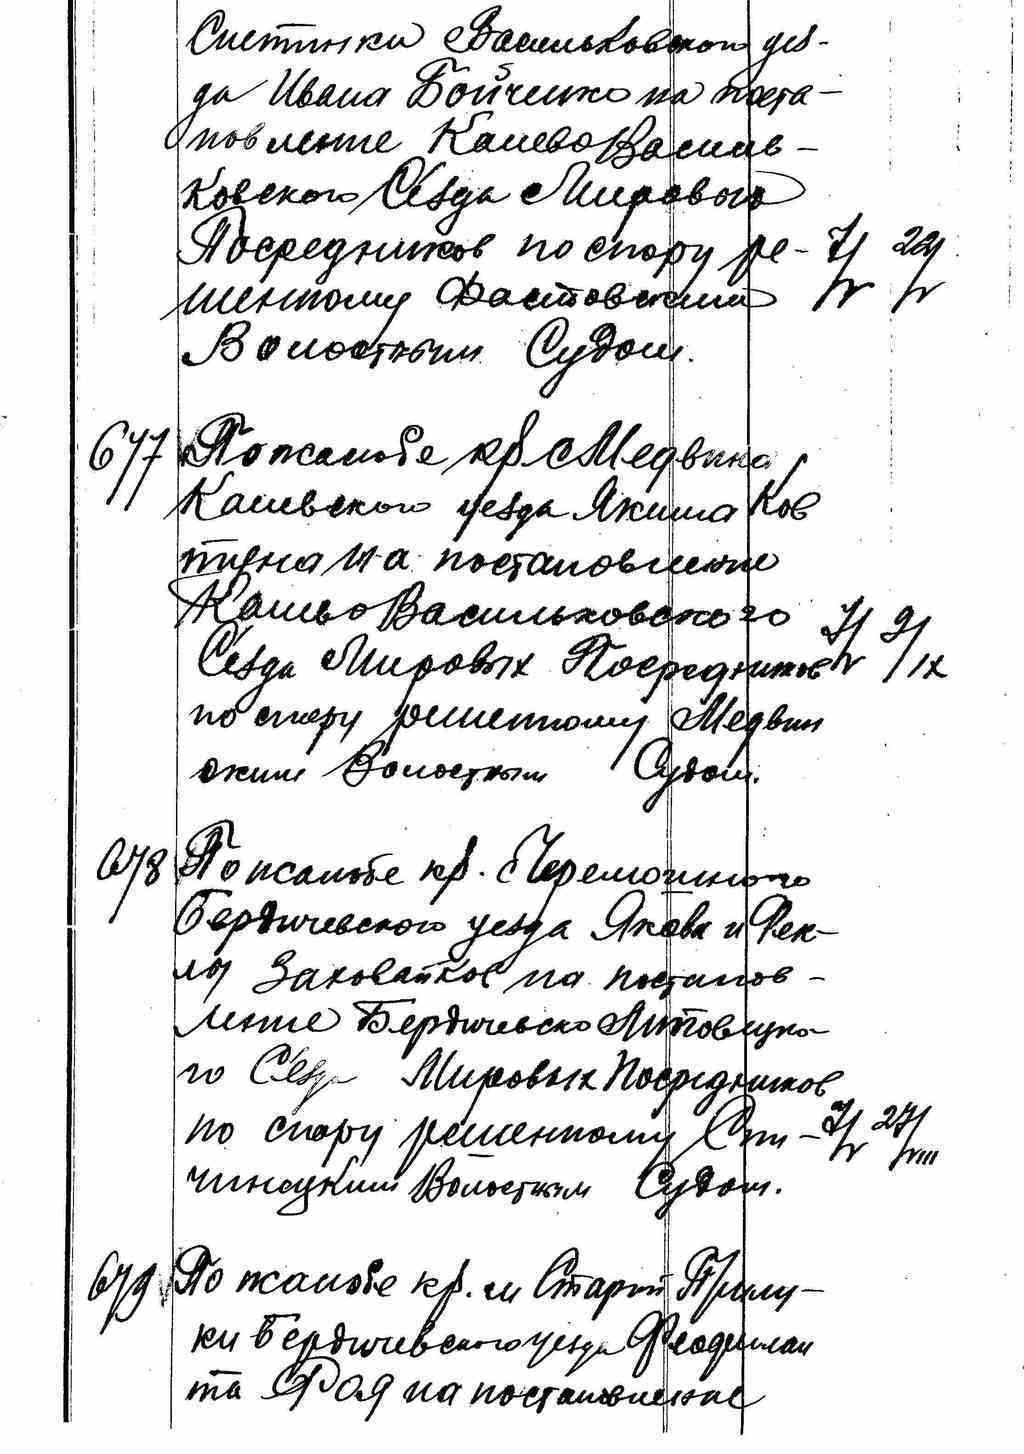 Снетинки Васильковского уез-
да Ивана Бойченко на поста-
новление Канево Василь-
ковского Сезда Мирового
Посредников по спору ре- 7/V 22/V
шенному Фастовским
Волостным Судом.
677 По жалобе кр. с Медвина
Каневского уезда Якима Ков
туна на постановление
Канево Васильковского
Сезда Мировых Посредников 7/V 9/IX
по спору решенному Медвин
ским Волостным Судом.
678 По жалобе кр. с Черемошного
Бердичевского уезда Якова и Фек-
лы на постанов-
ление Бердичевско Липовецко-
го Сезда Мировых Посредников
по спору решенному Спи- 7/V 27/VIII
чинецким Волостным Судом.
679 По жалобе кр. м Старой Прилу-
ки Бердичевского уезда
та на постановление